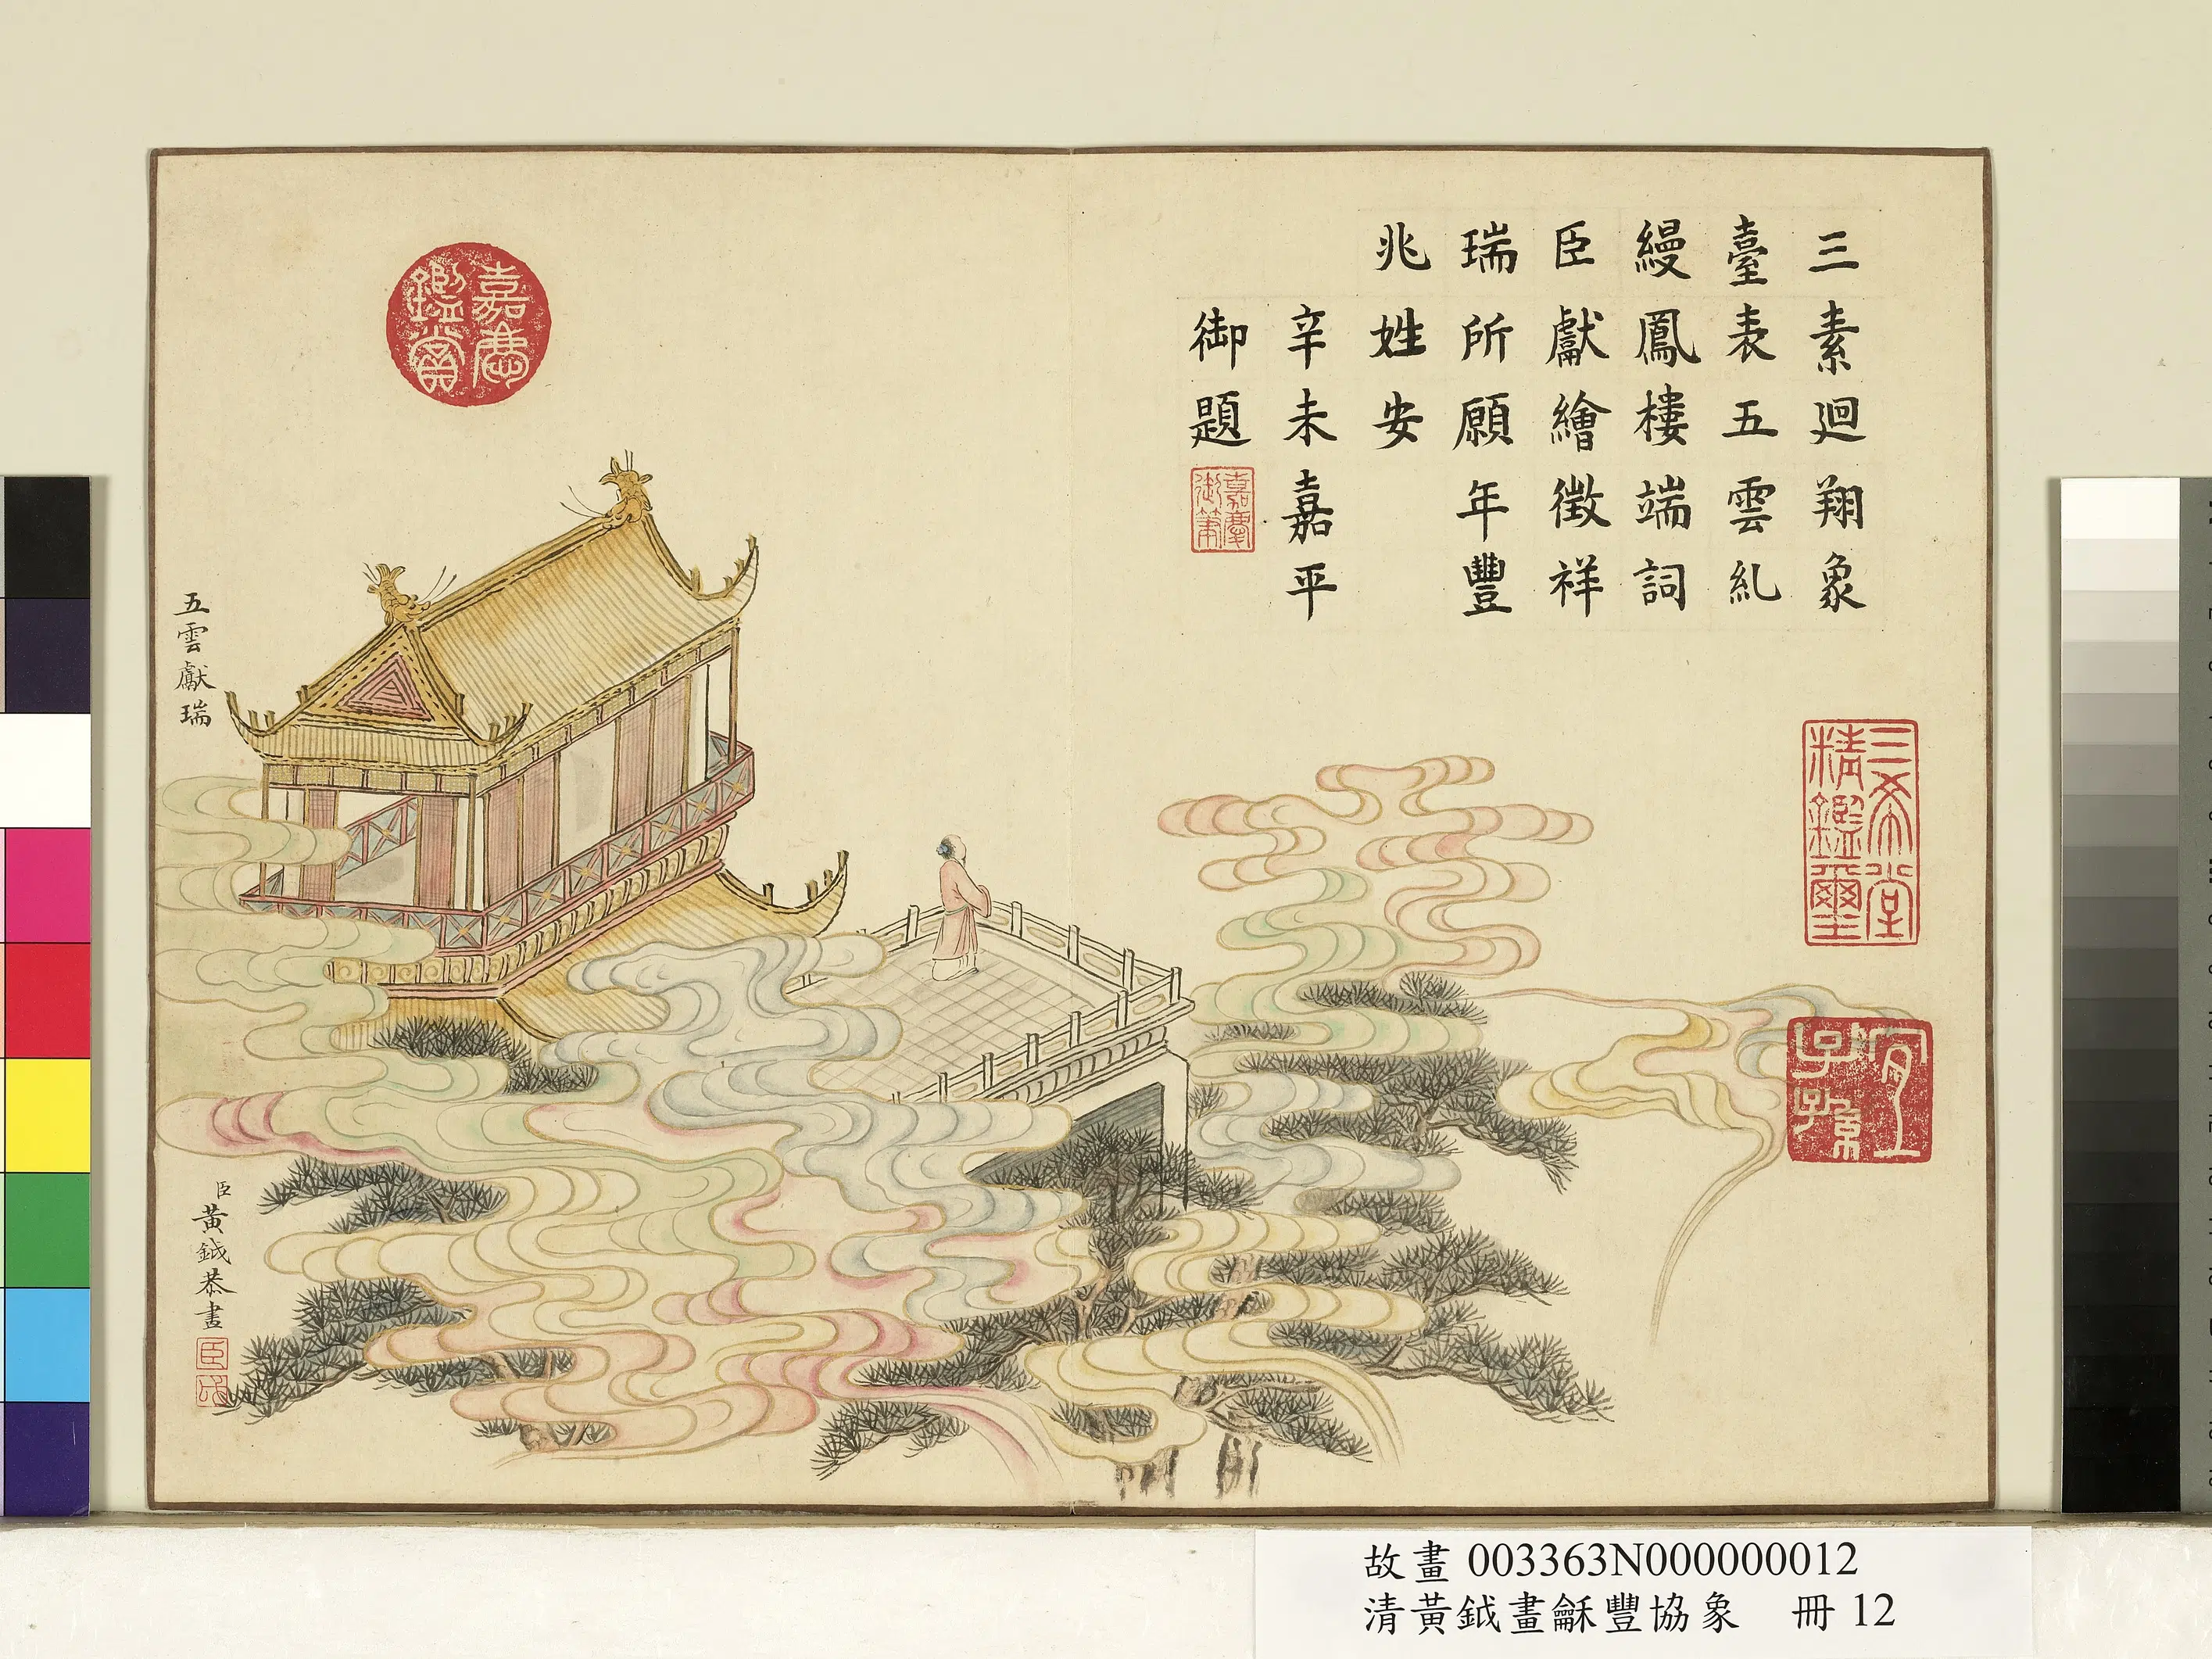 三素迴翔象
臺表五雲糺
縵鳳樓端詞
臣獻繪徵祥
瑞所願年豐
兆姓安
辛未嘉平
御題
嘉慶
御筆
三希堂
精鑑璽
宜
子孫
嘉慶
鑑賞
五雲獻瑞
臣黃鉞恭畫
臣
故畫 003363N000000012
清黃鉞畫龢豐協象 冊 12